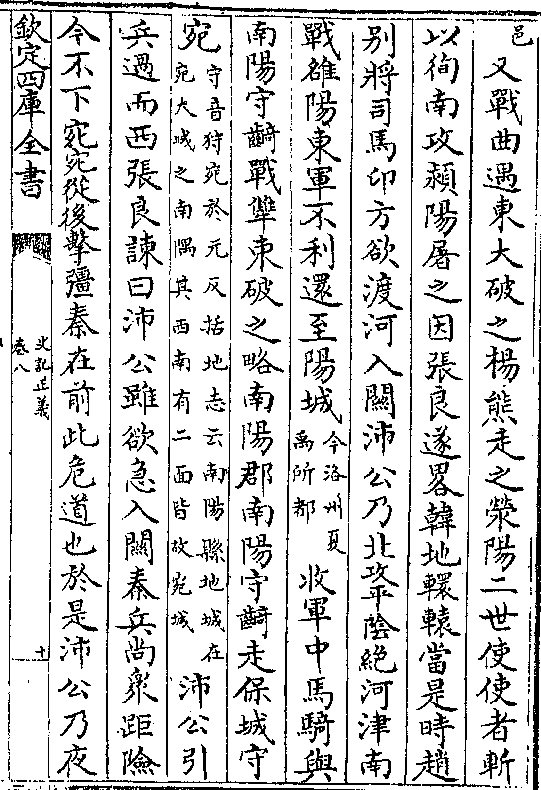 邑
又戰曲遇東大破之楊熊走之滎陽二世使使者斬
以徇南攻潁陽屠之因張良遂畧韓地轘轅當是時趙
别將司馬卬方欲渡河入關沛公乃北攻平陰絶河津南
戰雒陽東軍不利還至陽城
今洛州夏
禹所都
收軍中馬騎與
南陽守齮戰犨東破之略南陽郡南陽守齮走保城守
宛
守音狩宛於元反括地志云南陽縣地城在
宛大城之南隅其西南有二面皆故宛城
沛公引
兵過而西張良諫曰沛公雖欲急入關秦兵尚衆距險
今不下宛宛從後擊彊秦在前此危道也於是沛公乃夜
欽定四庫全書
史記正義
卷八
十